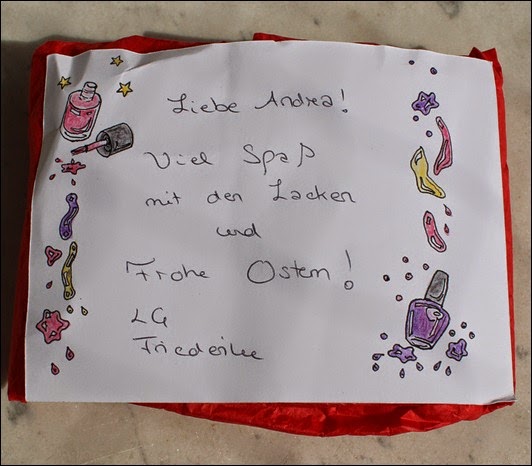 Liebe Andrea!
Viel Spaß
mit den Lacken
und
Frohe Ostern!
LG
Friederike